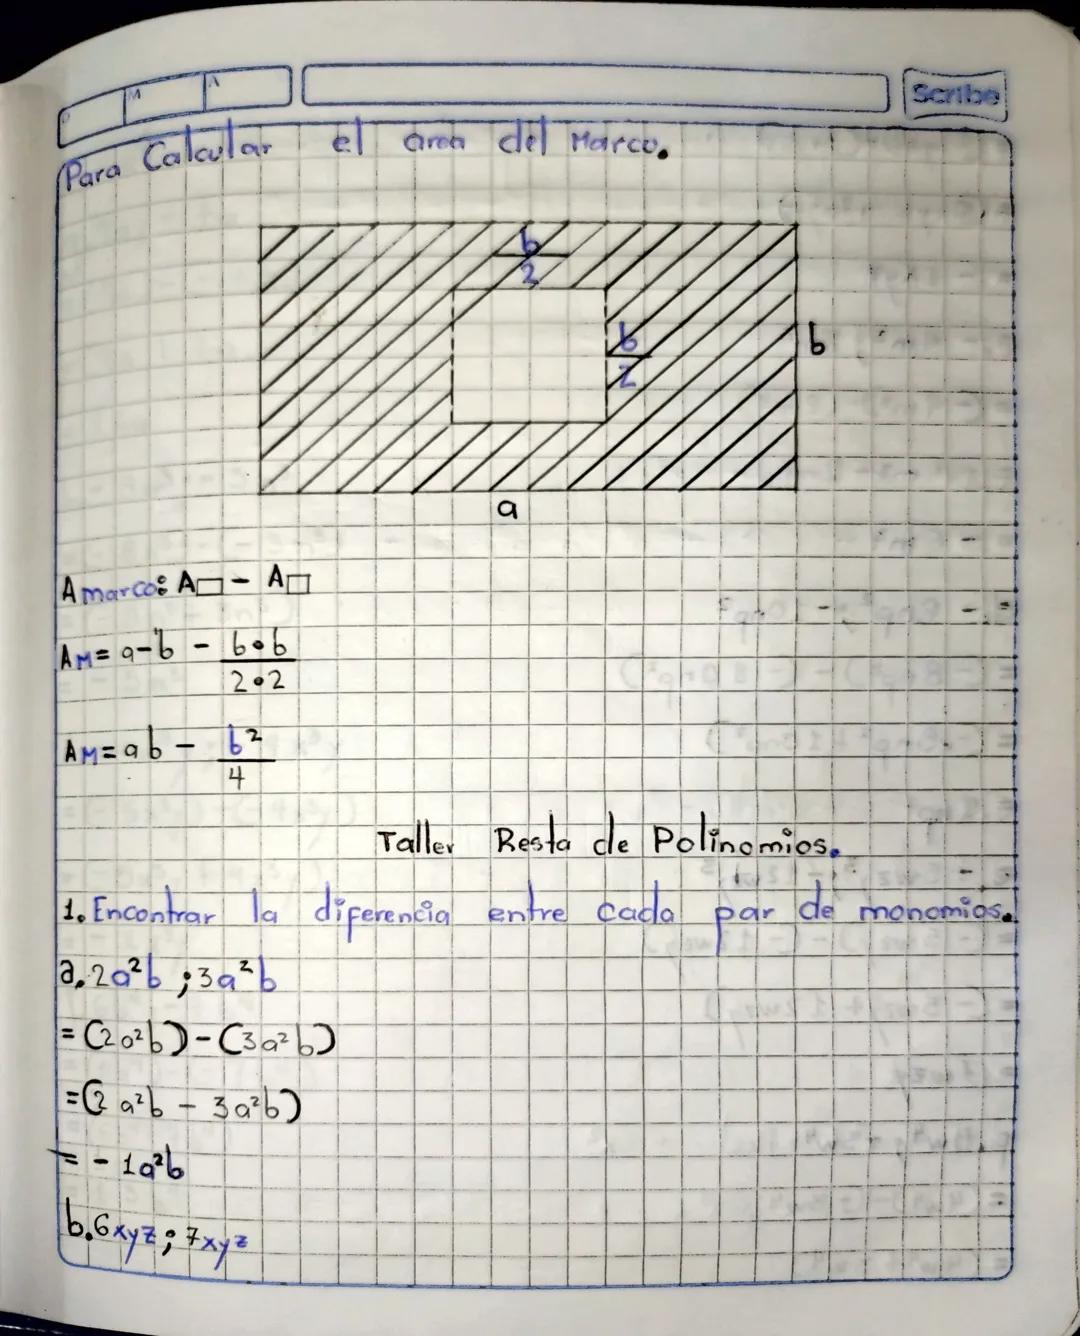 D M A
Scribe
Para Calcular el area del Marco.
b
2
b
2
b
a
A marco: A▭ - A□
AM= a-b - b•b
2•2
AM= ab - b²
4
Taller Resta de Polinomios.
1. Encontrar la diferencia entre cada par de monomios.
a. 2a²b ; 3a²b
= (2a²b) - (3a²b)
= (2a²b - 3a²b)
= - 1a²b
b. 6xyz ; 7xyz